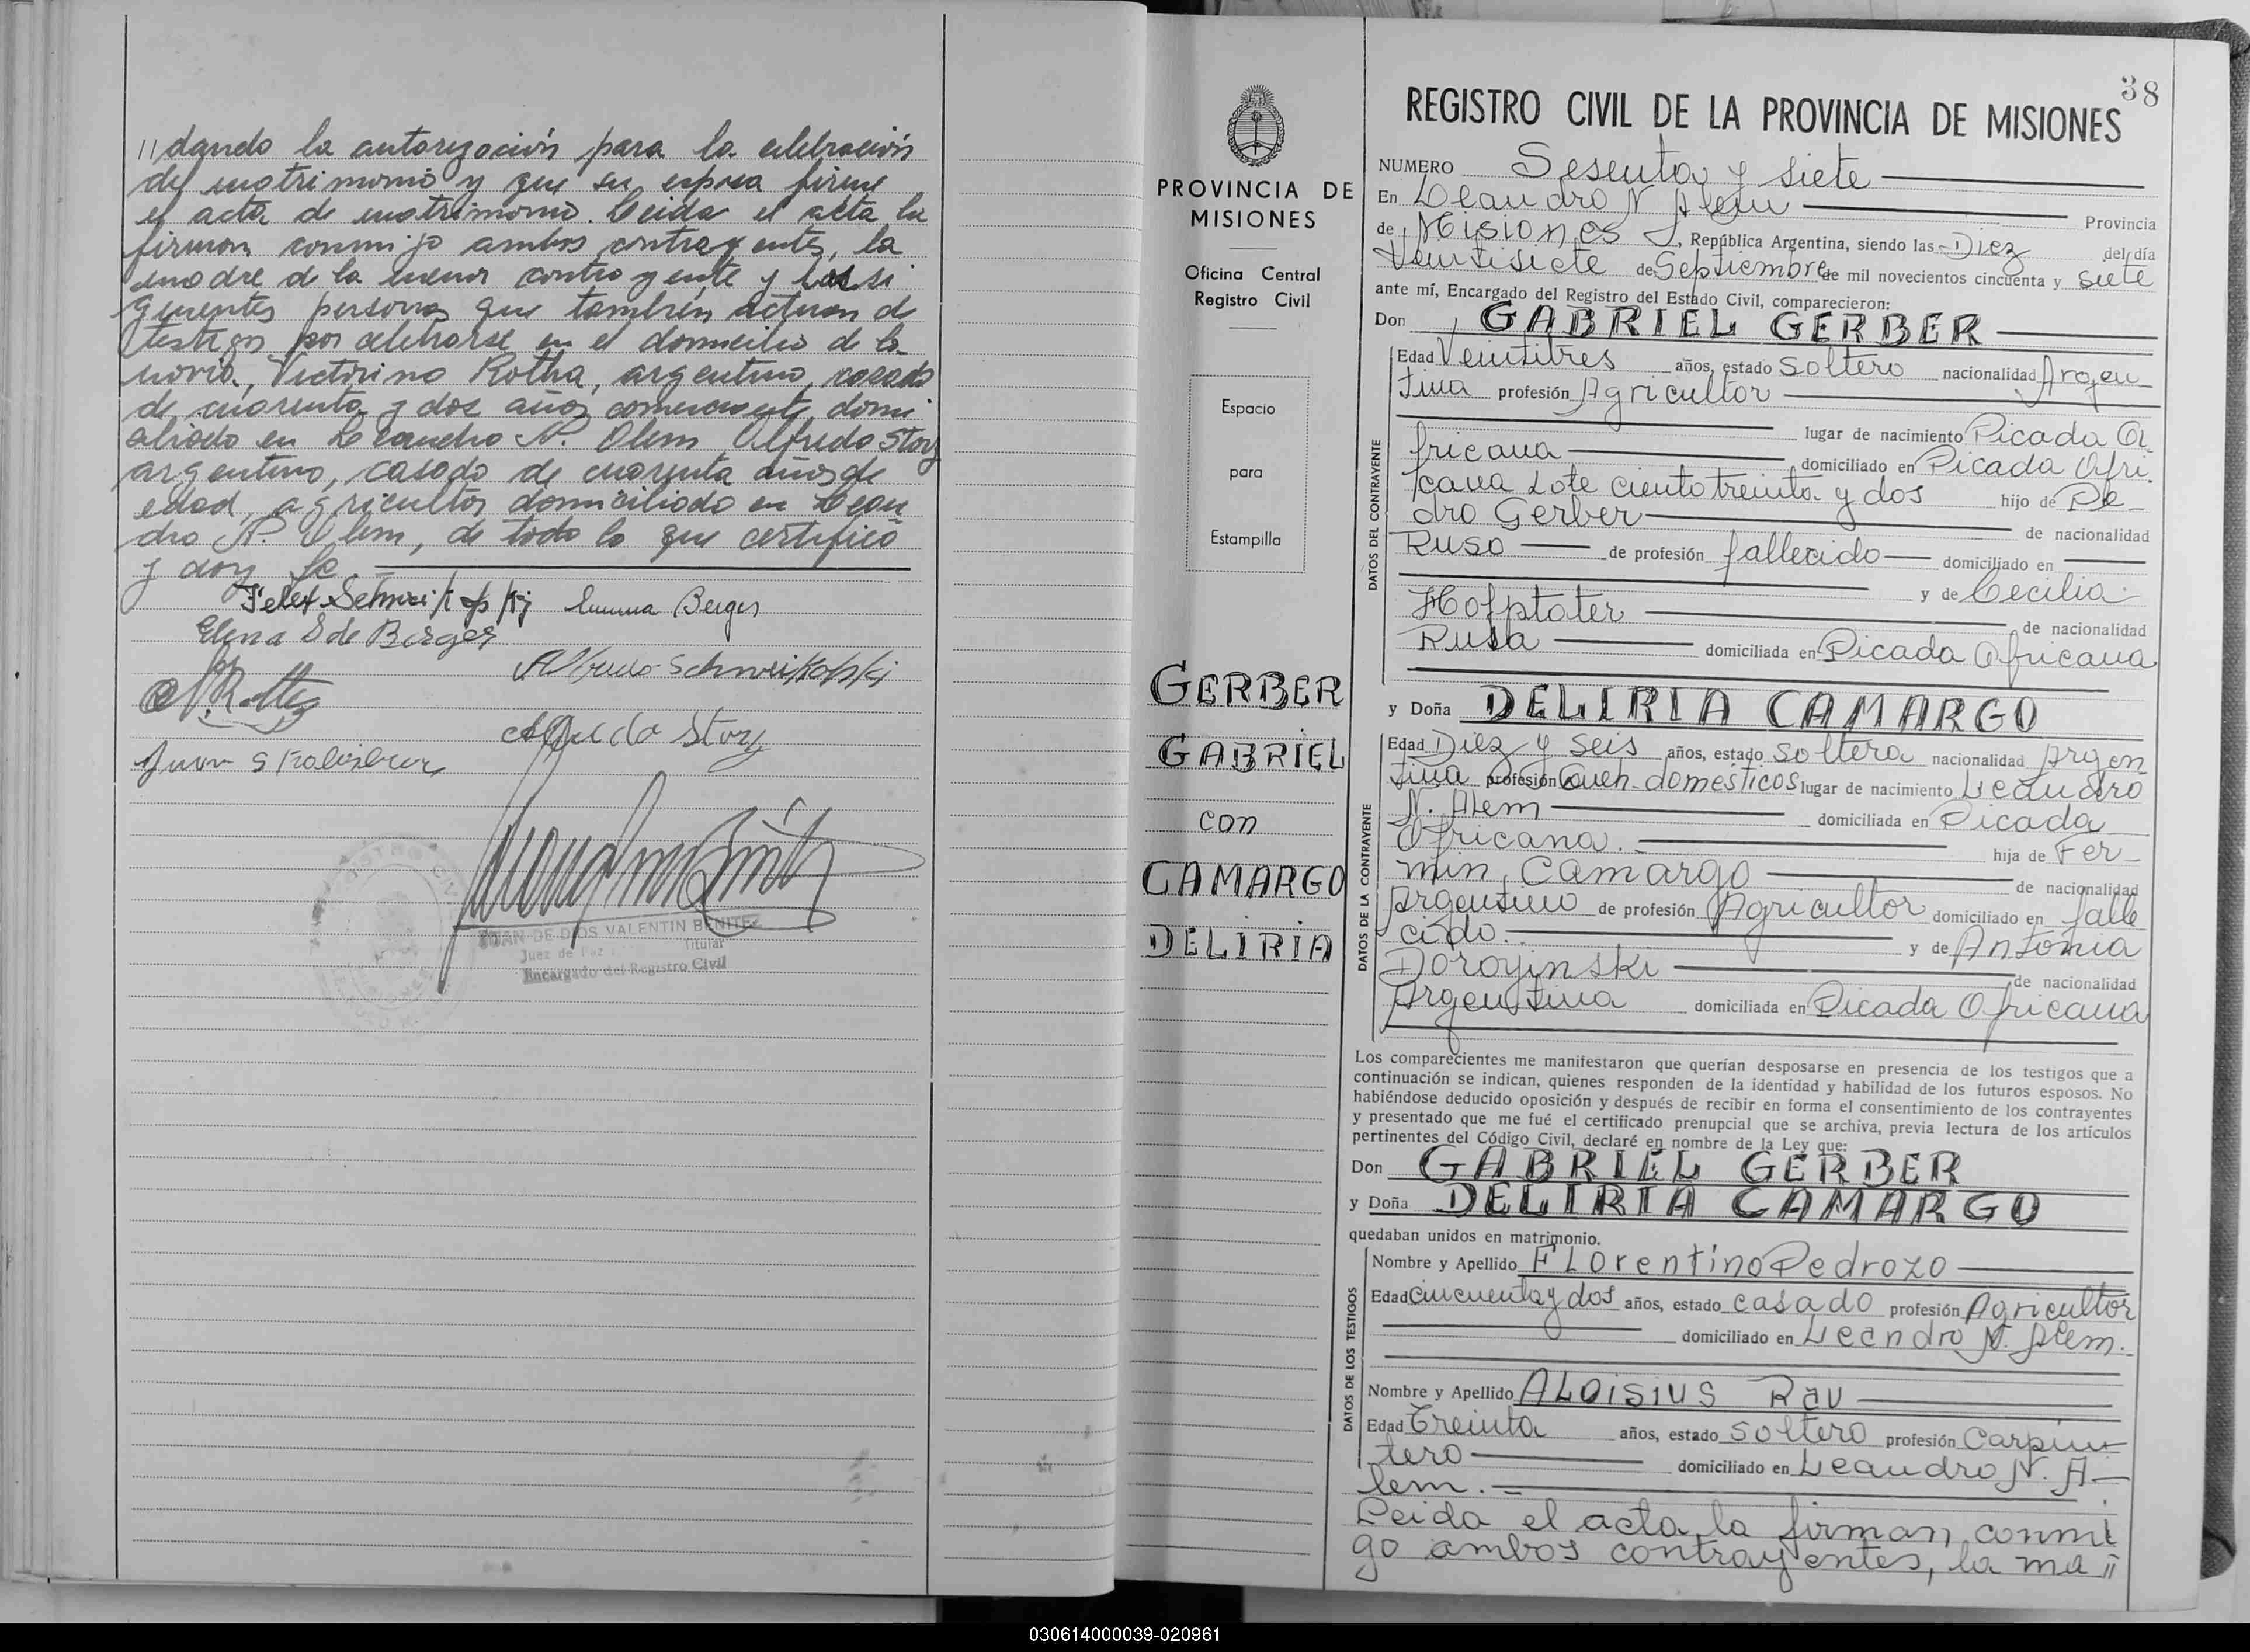 //dando la autorización para la celebración
del matrimonio y que su esposa firme
el acta de matrimonio. Leida el acta la
firman conmigo ambos contrayentes, la
madre de la menor contrayente y las si
guientes personas que también actuan de
testigos por celebrarse en el domicilio de la
novia, Victorino Rotha, argentino, casado
de cuarenta y dos años comerciante, domi
ciliado en Leandro N. Alem Alfredo Story
argentino, casado de cuarenta años de
edad, agricultor domiciliado en Lean
dro N. Alem, de todo lo que certifico
y doy fe.
Emma Berger
Elena S de Berger
Alfredo Story
JUAN DE DIOS VALENTIN BENITEZ
Titular
Juez de Paz
Encargado del Registro Civil
PROVINCIA DE
MISIONES
Oficina Central
Registro Civil
Espacio
para
Estampilla
GERBER
GABRIEL
con
CAMARGO
DELIRIA
38
REGISTRO CIVIL DE LA PROVINCIA DE MISIONES
NUMERO Sesenta y siete
En Leandro N Alem Provincia
de Misiones, República Argentina, siendo las Diez del día
Veintisiete de Septiembre de mil novecientos cincuenta y siete
ante mí, Encargado del Registro del Estado Civil, comparecieron:
Don GABRIEL GERBER
DATOS DEL CONTRAYENTE
Edad Veintitres años, estado Soltero nacionalidad Argen
tina profesión Agricultor
lugar de nacimiento Picada A
fricana domiciliado en Picada Afri
cana Lote ciento treinta y dos hijo de Pe
dro Gerber de nacionalidad
Ruso de profesión fallecido domiciliado en
y de Cecilia
Hofptater de nacionalidad
Rusa domiciliada en Picada Africana
y Doña DELIRIA CAMARGO
DATOS DE LA CONTRAYENTE
Edad Diez y seis años, estado soltera nacionalidad Argen
tina profesión Queh. domésticos lugar de nacimiento Leandro
N. Alem domiciliada en Picada
Africana. hija de Fer-
min Camargo de nacionalidad
Argentino de profesión Agricultor domiciliado en falle
cido. y de Antonia
Doroyinski de nacionalidad
Argentina domiciliada en Picada Africana
Los comparecientes me manifestaron que querían desposarse en presencia de los testigos que a
continuación se indican, quienes responden de la identidad y habilidad de los futuros esposos. No
habiéndose deducido oposición y después de recibir en forma el consentimiento de los contrayentes
y presentado que me fué el certificado prenupcial que se archiva, previa lectura de los artículos
pertinentes del Código Civil, declaré en nombre de la Ley que:
Don GABRIEL GERBER
y Doña DELIRIA CAMARGO
quedaban unidos en matrimonio.
DATOS DE LOS TESTIGOS
Nombre y Apellido Florentino Pedrozo
Edad cincuenta y dos años, estado casado profesión Agricultor
domiciliado en Leandro N. Alem.
Nombre y Apellido ALOISIUS RAU
Edad Treinta años, estado soltero profesión Carpin
tero domiciliado en Leandro N. A
lem.
Leida el acta la firman, conmi
go ambos contrayentes, la ma //
030614000039-020961